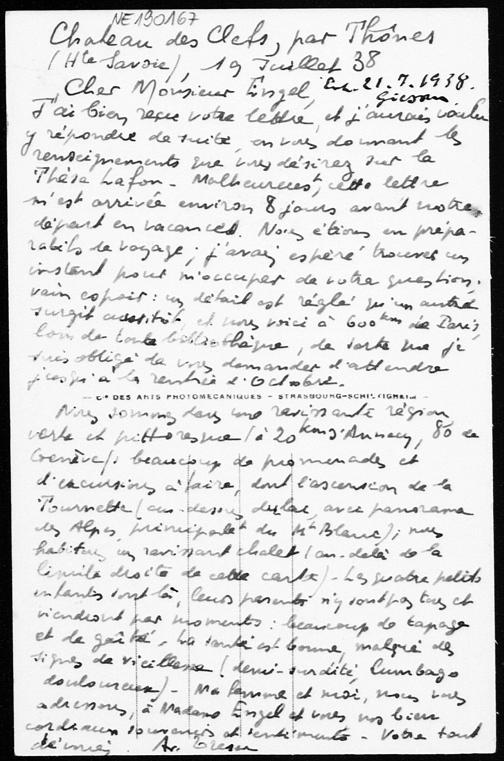 NE190167
Chateau des Clefs, par Thônes
(Hte Savoie), 19 Juillet 38
Cher Monsieur Engel, 21.7.1938.
J'ai bien reçu votre lettre, et j'aurais voulu
y répondre de suite, en vous donnant les
renseignements que vous désirez sur la
Thèse Lafon - Malheureust, cette lettre
m'est arrivée environ 8 jours avant notre
départ en vacances. Nous étions en prépa-
ratifs de voyage; j'avais espéré trouver un
instant pour m'occuper de votre question;
vain espoir: un détail est réglé qu'un autre
surgit aussitôt, et nous voici à 600 km de Paris,
loin de toute bibliothèque, de sorte que je
suis obligé de vous demander d'attendre
jusqu'à la rentrée d'Octobre.
Cie DES ARTS PHOTOMECANIQUES - STRASBOURG-SCHILTIGHEIM
Nous sommes dans une ravissante région
verte et pittoresque (à 20 km d'Annecy, 80 de
Genève): beaucoup de promenades et
d'excursions à faire, dont l'ascension de la
Tournette (au-dessus du lac, avec panorama
des Alpes, principalet du Mt Blanc); nous
habitons un ravissant chalet (au-delà de la
limite droite de cette carte) - Les quatre petits
enfants sont là, leurs parents n'y sont pas tous et
viendront par moments: beaucoup de tapage
et de gaîté. La santé est bonne, malgré des
signes de vieillesse (demi-surdité, lumbago
douloureux) - Ma femme et moi, nous vous
adressons, à Madame Engel et vous nos bien
cordiaux souvenirs et sentiments - Votre tout
dévoué Ar.